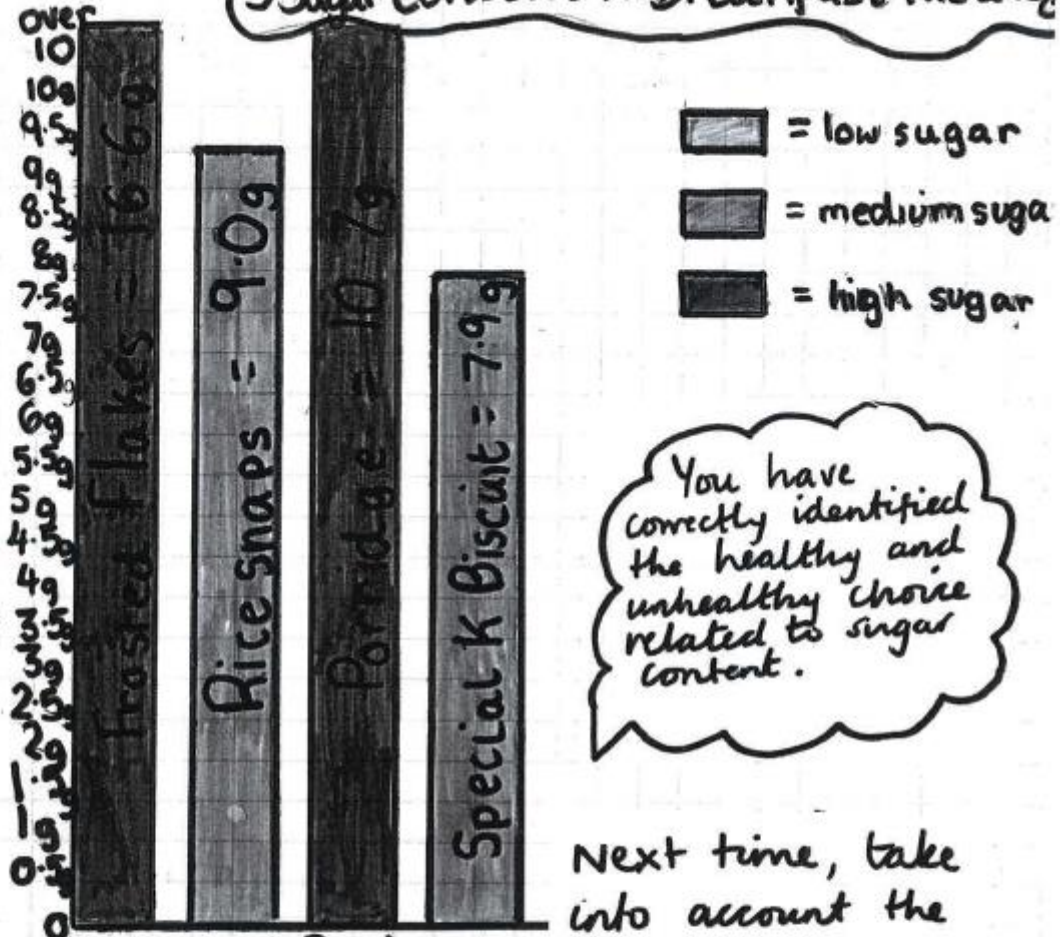 Sugar Content in Breakfast
over
10
10g
9.5g
9g
8.5g
8g
7.5g
7g
6.5g
6g
5.5g
5g
4.5g
4g
3.5g
3g
2.5g
2g
1.5g
1g
0.5g
0
Frosted Flakes = 16.6g
Rice snaps = 9.0g
Porridge = 10.7g
Special K Biscuit = 7.9g
= low sugar
= medium suga
= high sugar
You have
correctly identified
the healthy and
unhealthy choice
related to sugar
content.
Next time, take
into account the